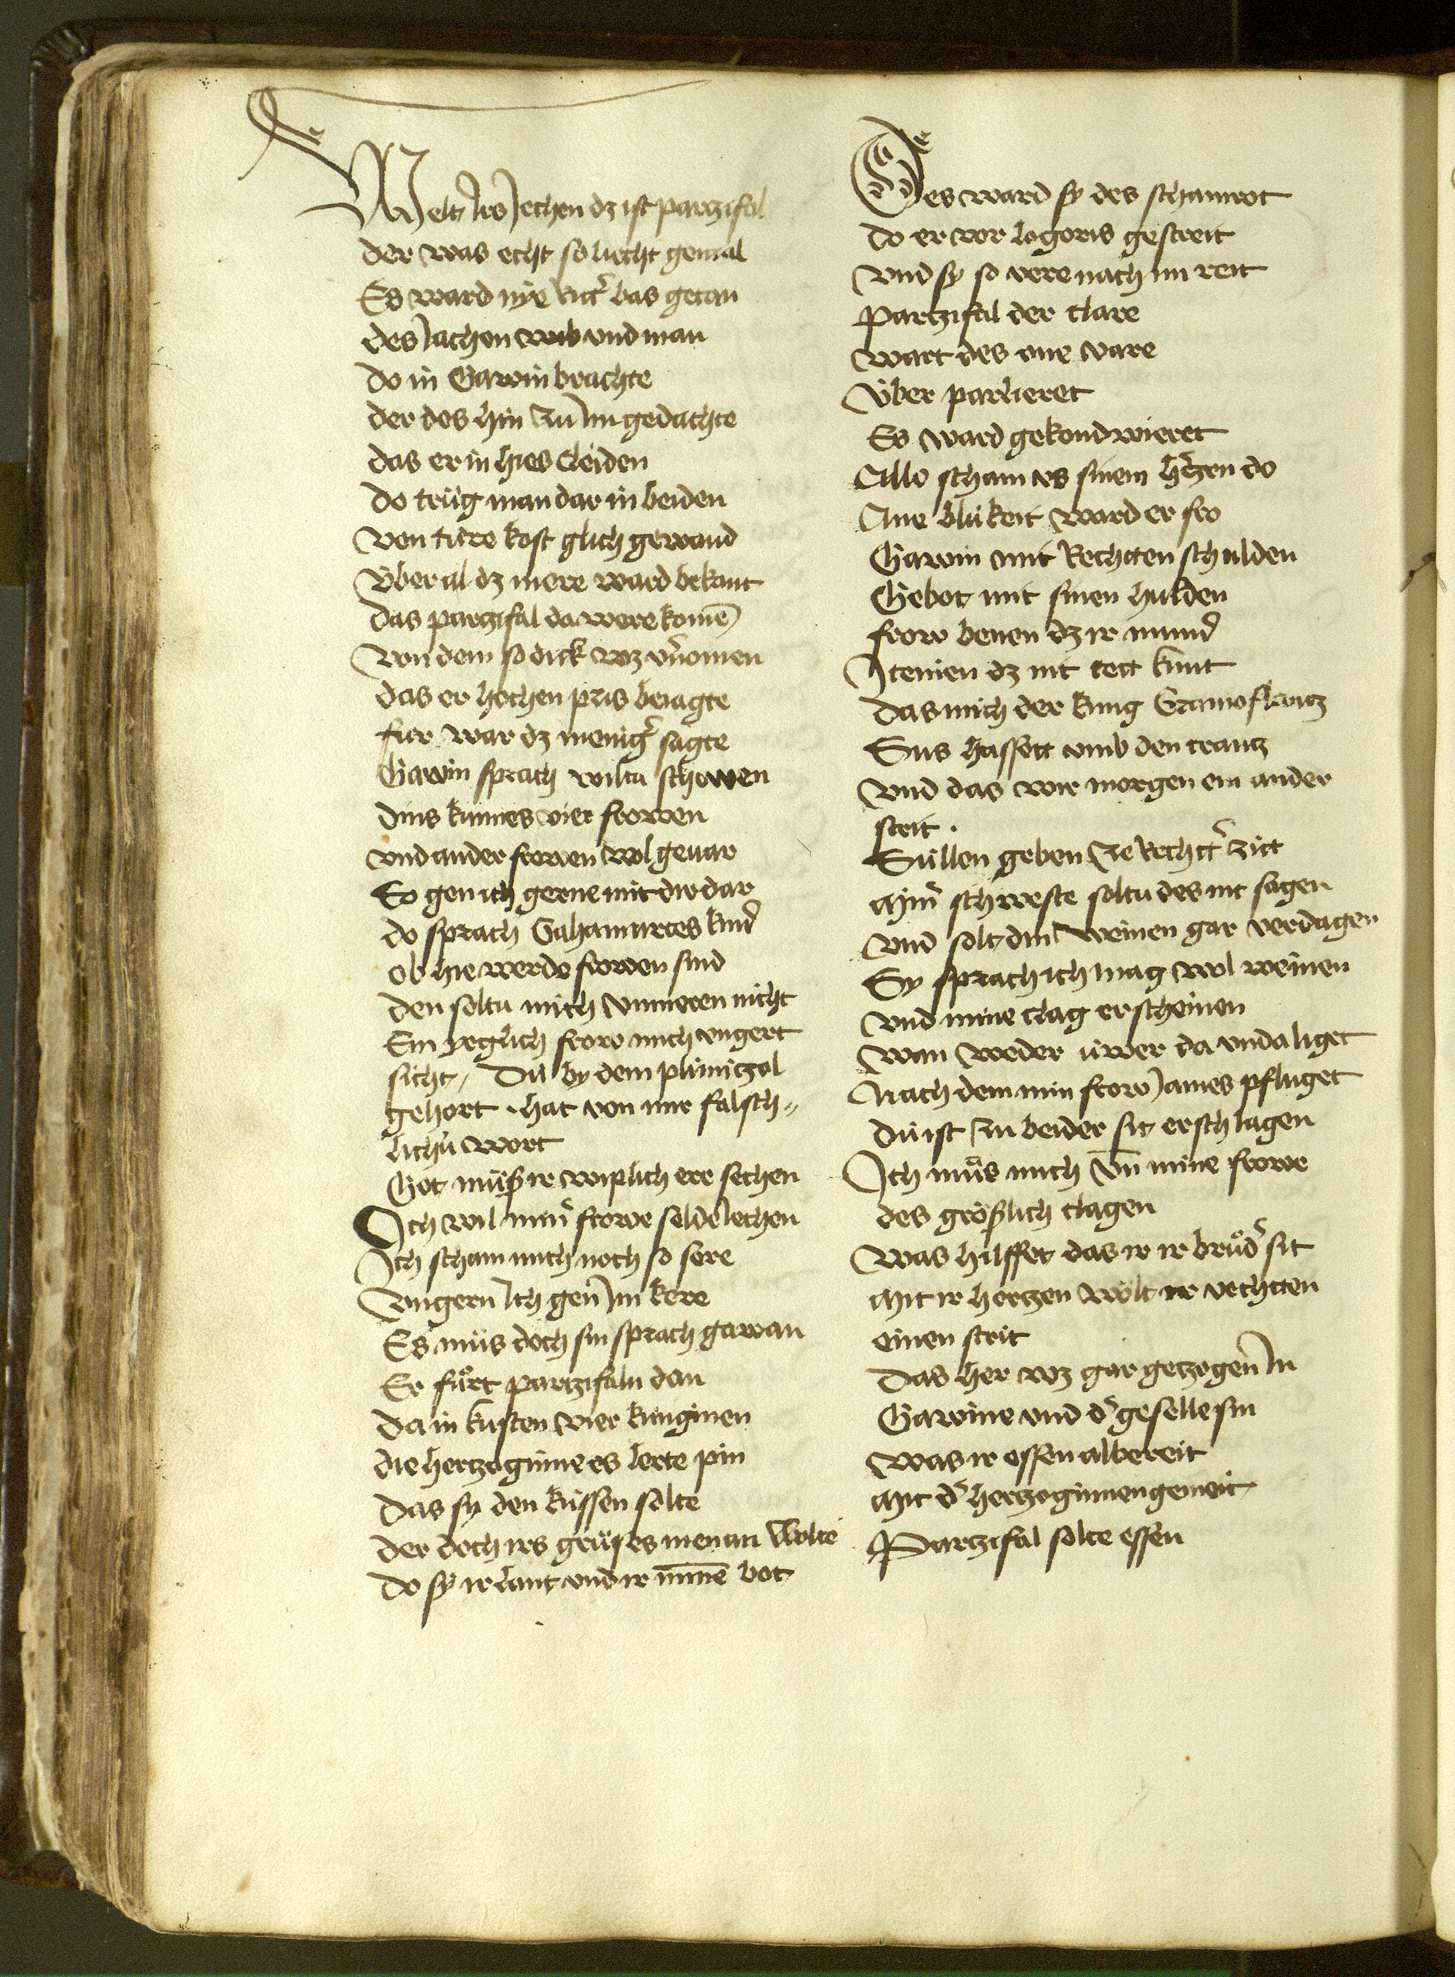 Welt Ir Jechen dz ist partzifal
der was echt so liecht gemal
Es ward nye ritt' bas getan
des Jachen wib vnd man
do in Gawin brachte
der des hin zu im gedachte
das er in hies cleiden
do trüg man dar in beiden
von türe kost glich gewand
Über al dz mere ward bekant
Das partzifal da were komē
Von dem so dick wz v'nomen
das er hochen pris beiagte
fur war dz menig' sagte
Gawin sprach wiltu schowen
dins kunnes vier frowen
vnd ander frowen wol geuar
So gen ich gerne mit dir dar
do sprach Gahamurtes kind
ob hie werde frowen sind
den soltu mich vnmeren nicht
Ein yeglich frow mich vngert
sicht / Dü by dem plimitzol
gehort · hat von mir falsch=
lichü wort
Got müß ir wiplich ere sechen
Ich wil min' frowe selde Jechen
Ich scham mich noch so sere
Vngern Ich gen Jm kere
Es müs doch sin sprach gawan
Er fürt partzifaln dan
Da in kusten vier künginen
die hertzoginne es lerte pin
Das sy den küssen solte
der doch irs grüses nienan Wolte
do sy ir lant vnd ir minne bot
Des ward sy des schamrot
do er vor logrois gestreit
vnd sy so vere nach im reit
Partzifal der clare
Wart des one vare
Über parlieret
Es ward gekondwieret
Alle scham vs sinem h'tzen do
Ane blükeit ward er fro
Gawin mit Rechten schulden
Gebot mit sinen hulden
frow benen dz ir mund
Jtenien dz nit tett kunt
das mich der kung Gramoflantz
Sus hassett vmb den crantz
vnd das wir morgen ein ander
strit ·
Süllen geben ze Recht' zitt
Min' schweste soltu des nit sagen
vnd solt din weinen gar verdagen
Sy sprach ich mag wol weinen
vnd mine clag erscheinen
wan weder üwer da vnda liget
Nach dem min frow James pfliget
dü ist zu beider sit erschlagen
Ich müs mich vn̄ mine frowe
des größlich clagen
Was hilffet das ir ir brüd' sit
Mit ir hertzen wolt ir vechten
einen strit
Das her wz gar getzogen In
Gawine vnd d' geselle sin
was ir essen albereit
Mit d' hertzoginnen gemeit
Partzifal solte essen